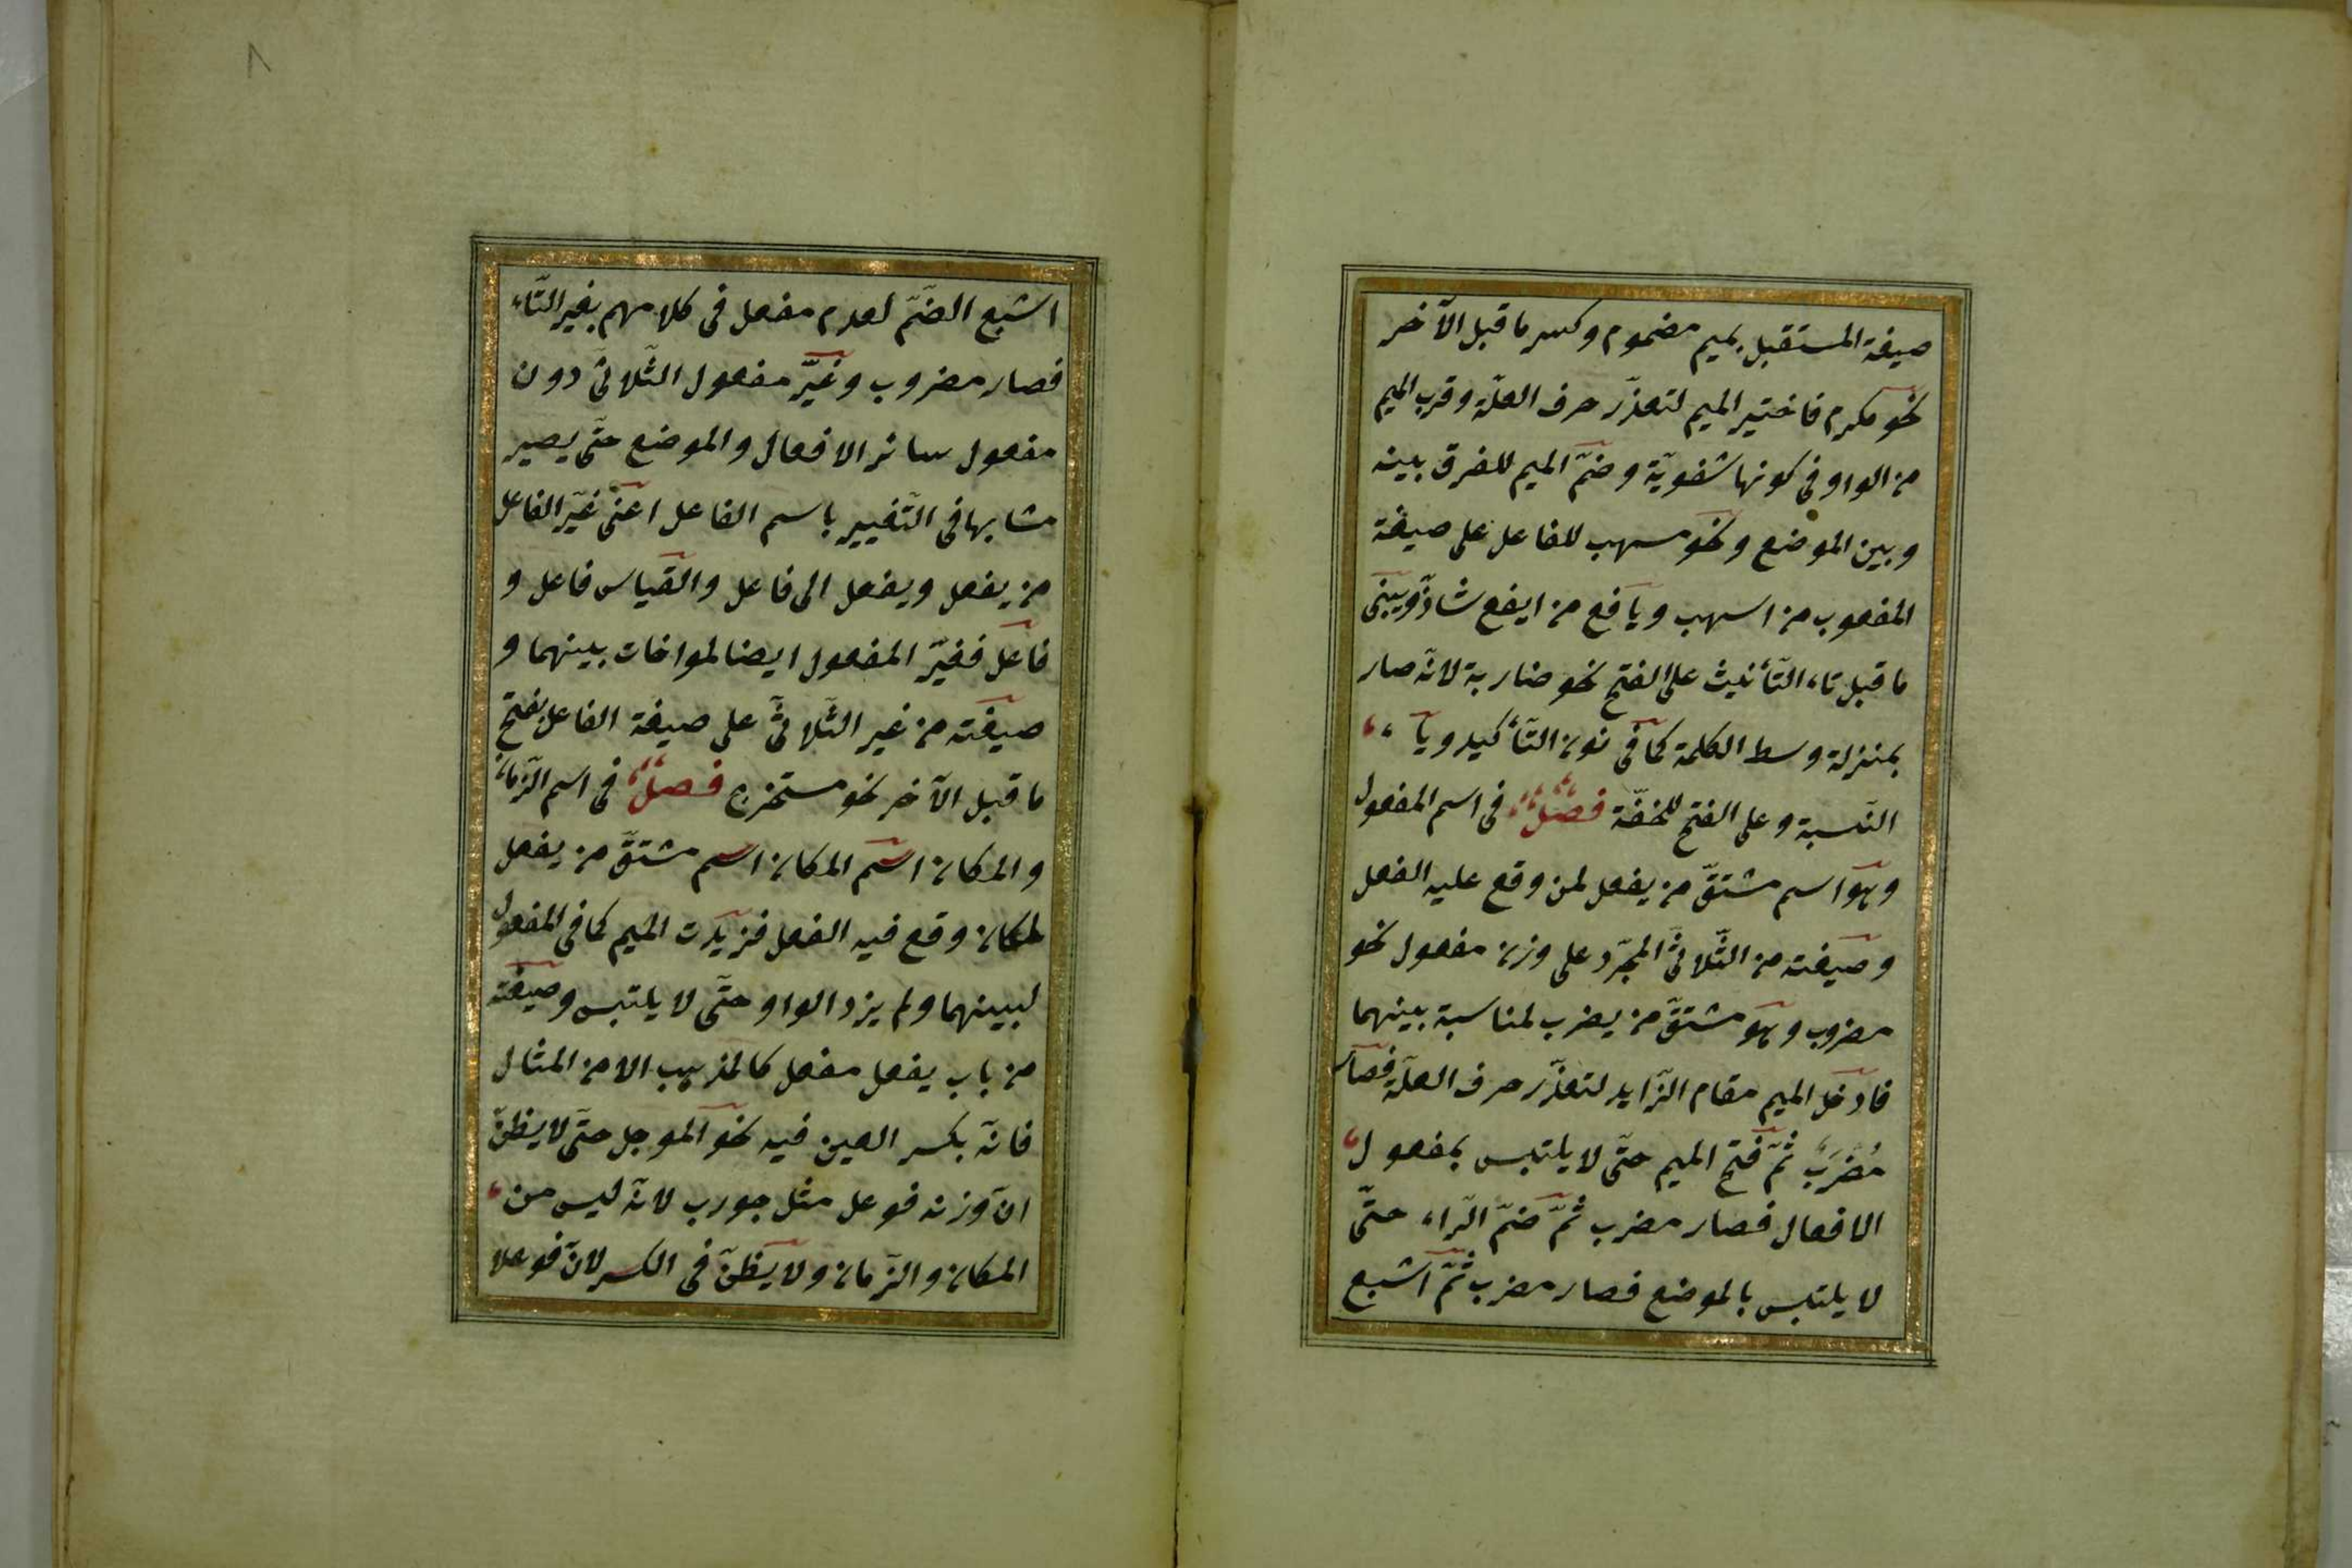 صيغة المستقبل بميم مضموم وكسر ما قبل الآخر
نحو مكرم فاختير الميم لتعذّر حرف العلّة وقرب الميم
من الواو في كونها شفويّة وضمّ الميم للفرق بينه
وبين الموضع ونحو مسهب للفاعل على صيغة
المفعوب من اسهب ويافع من ايفع شاذّ ويبنى
ما قبل تاء التّأنيث على الفتح نحو ضاربة لانّه صار
بمنزلة وسط الكلمة كما في نون التّأكيد وياء
النّسبة وعلى الفتح للخفّة فصل في اسم المفعول
وهو اسم مشتقّ من يفعل لمن وقع عليه الفعل
وصيغته من الثّلاثيّ المجرّد على وزن مفعول نحو
مضروب وهو مشتقّ من يضرب لمناسبة بينهما
فادخل الميم مقام الزّايد لتعذّر حرف العلّة فصار
مُضْرَبٌ ثمّ فتح الميم حتّى لا يلتبس بمفعول
الافعال فصار مضرب ثمّ ضمّ الرّاء حتّى
لا يلتبس بالموضع فصار مضرب ثمّ اشبع
٨
اشبع الضّمّ لعدم مفعل في كلامهم بغير التّاء
فصار مضروب وغيّر مفعول الثّلاثيّ دون
مفعول سائر الافعال والموضع حتّى يصير
مشابها في التّغيير باسم الفاعل اعنى غيّر الفاعل
من يفعل ويفعل الى فاعل والقياس فاعل و
فاعل فغيّر المفعول ايضا لمواخات بينهما و
صيغته من غير الثّلاثيّ على صيغة الفاعل بفتح
ما قبل الآخر نحو مستخرج فصل في اسم الزّمان
والمكان اسم المكان اسم مشتقّ من يفعل
لمكان وقع فيه الفعل فزيدت الميم كما في المفعول
لبينهما ولم يزد الواو حتّى لا يلتبس وصيغته
من باب يفعل مفعل كالمذهب الا من المثال
فانّه بكسر العين فيه نحو الموجل حتّى لا يظنّ
انّ وزنه فوعل مثل جورب لانّه ليس من
المكان والزّمان ولا يظنّ في الكسر لانّ فوعلا